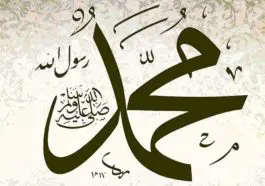 محمد
رسول الله
صلى الله عليه وسلم